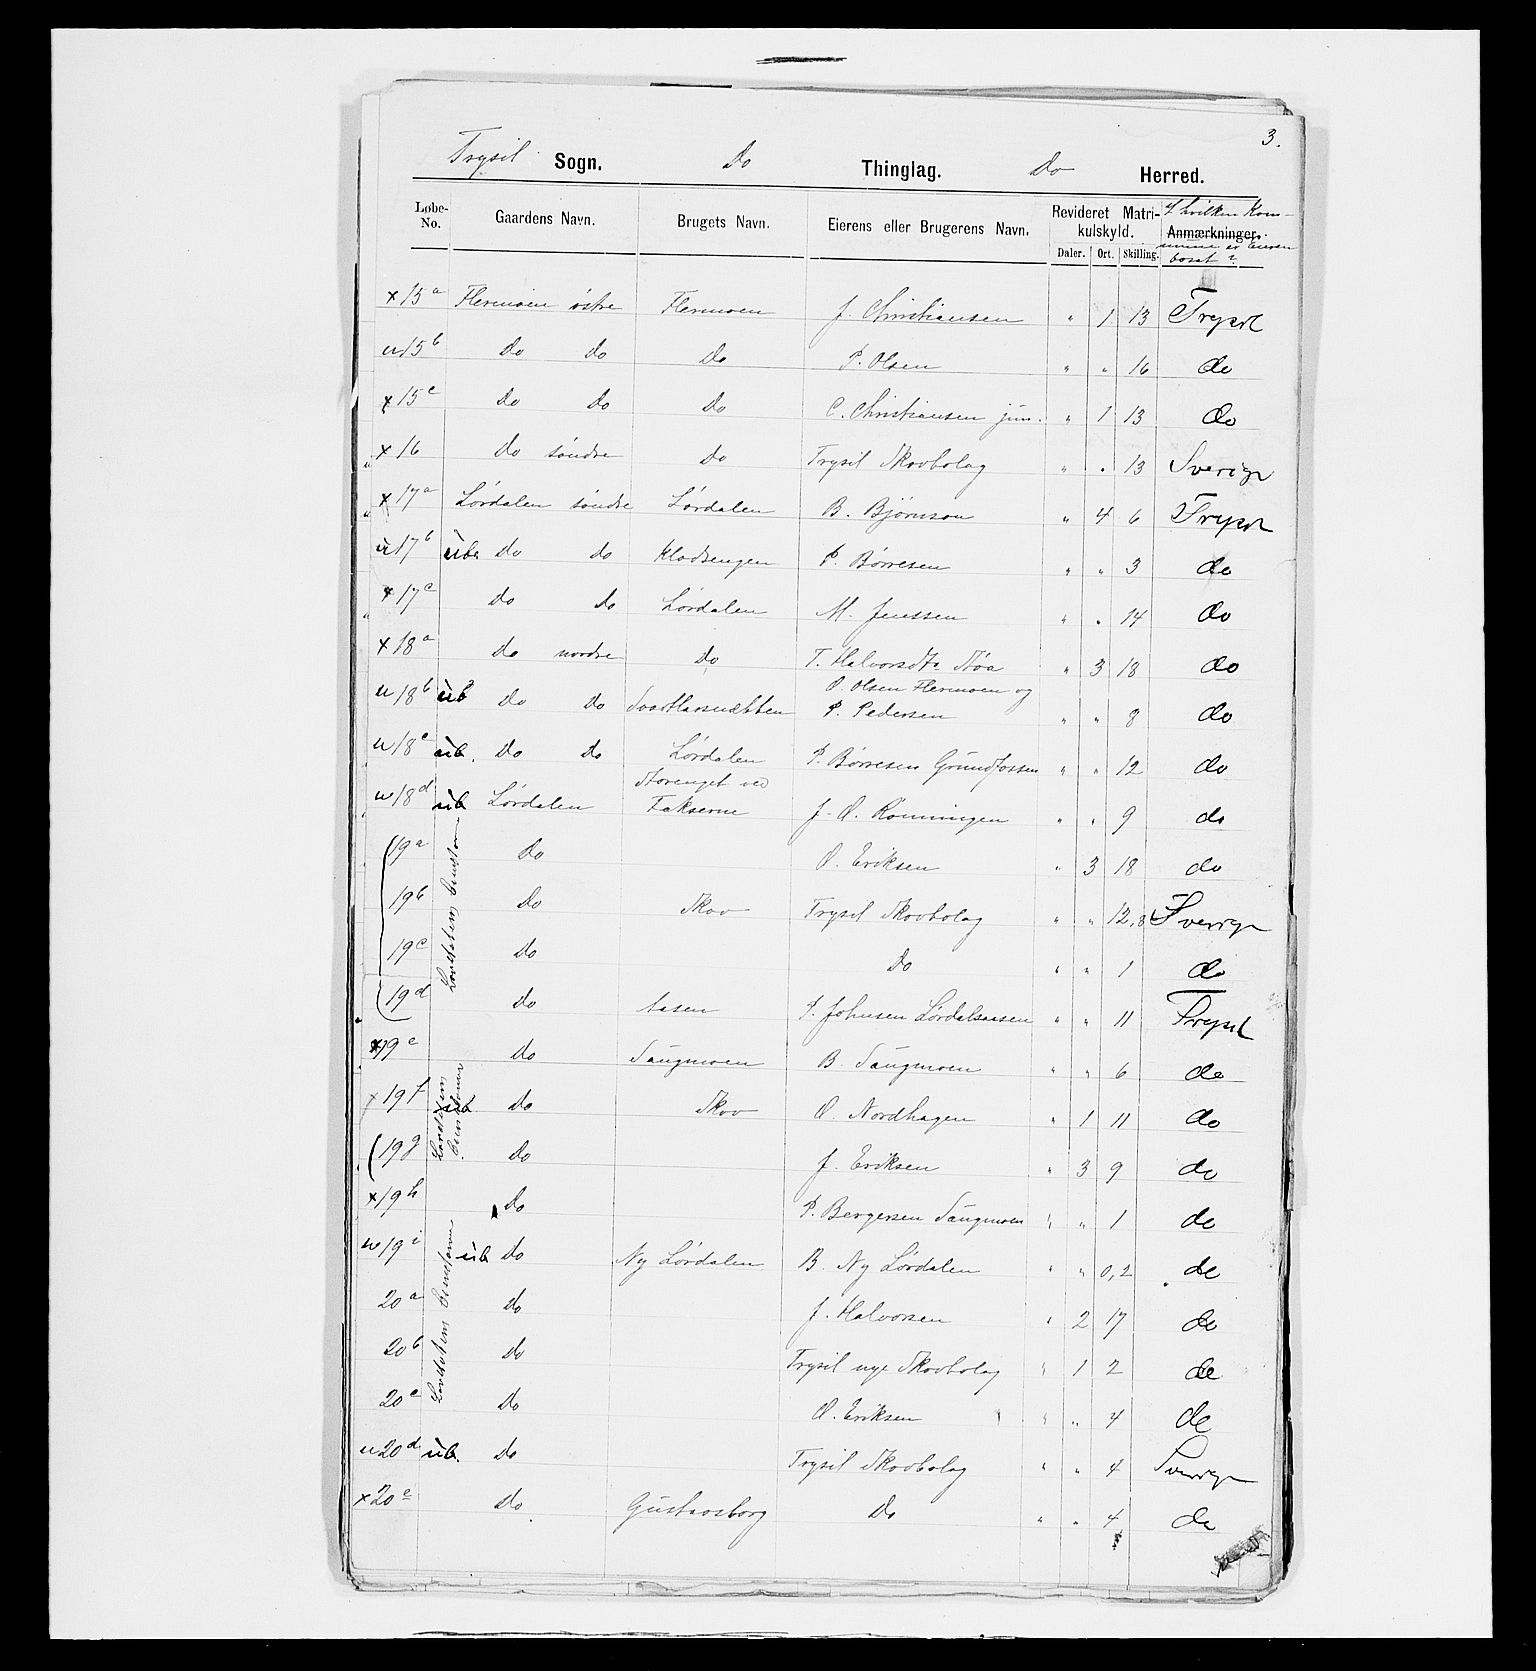 3.
Trysil Sogn. Do Thinglag. Do Herred.
Løbe-No. Gaardens Navn. Brugets Navn. Eierens eller Brugerens Navn. Revideret Matrikulskyld. Daler. Ort. Skilling. Anmærkninger. I hvilken Kommune er Eieren bosat?
x 15a Flermoen østre Flermoen J. Christiansen " 1 13 Trysil
u 15b Do Do Do P. Olsen " " 16 do
x 15c Do Do Do C. Christiansen jun. " 1 13 do
x 16 Do søndre Do Trysil Skovbolag " " 13 Sverige
x 17a Lørdalen søndre Lørdalen B. Bjørnson " 4 6 Trysil
u 17b üb. Do Do Kladsengen P. Børresen " " 3 do
x 17c Do Do Lørdalen M. Jenssen " " 14 do
x 18a Do nordre Do T. Halvorsdtr. Støa " 3 18 do
O. Olsen Flermoen og
u 18b üb Do Do P. Pedersen " " 8 do
u 18c üb. Do Do Lørdalen P. Børresen Grundfossen " " 12 do
Storenget ved
u 18d üb Lørdalen Fakserne J. O. Rønningen " " 9 do
19a Do O. Eriksen " 3 18 do
19b Do Skov Trysil Skovbolag " " 12,8 Sverige
19c Do Do " " 1 do
19d Do Aasen P. Johnsen Lørdalsaasen " " 11 Trysil
x 19e Do Saugmoen B. Saugmoen " " 6 do
x 19f üb Do Skov O. Nordhagen " 1 11 do
19g Do J. Eriksen " 3 9 do
x 19h Do P. Bergersen Saugmoen " " 1 do
u 19i üb Do Ny Lørdalen B. Ny Lørdalen " " 0,2 do
20a Do J. Halvorsen " 2 17 do
20b Do Trysil nye Skovbolag " 1 2 do
20c Do O. Eriksen " " 4 do
u 20d üb. Do Trysil Skovbolag " " 4 Sverige
x 20e Do Gustavsborg Do " " 4 do